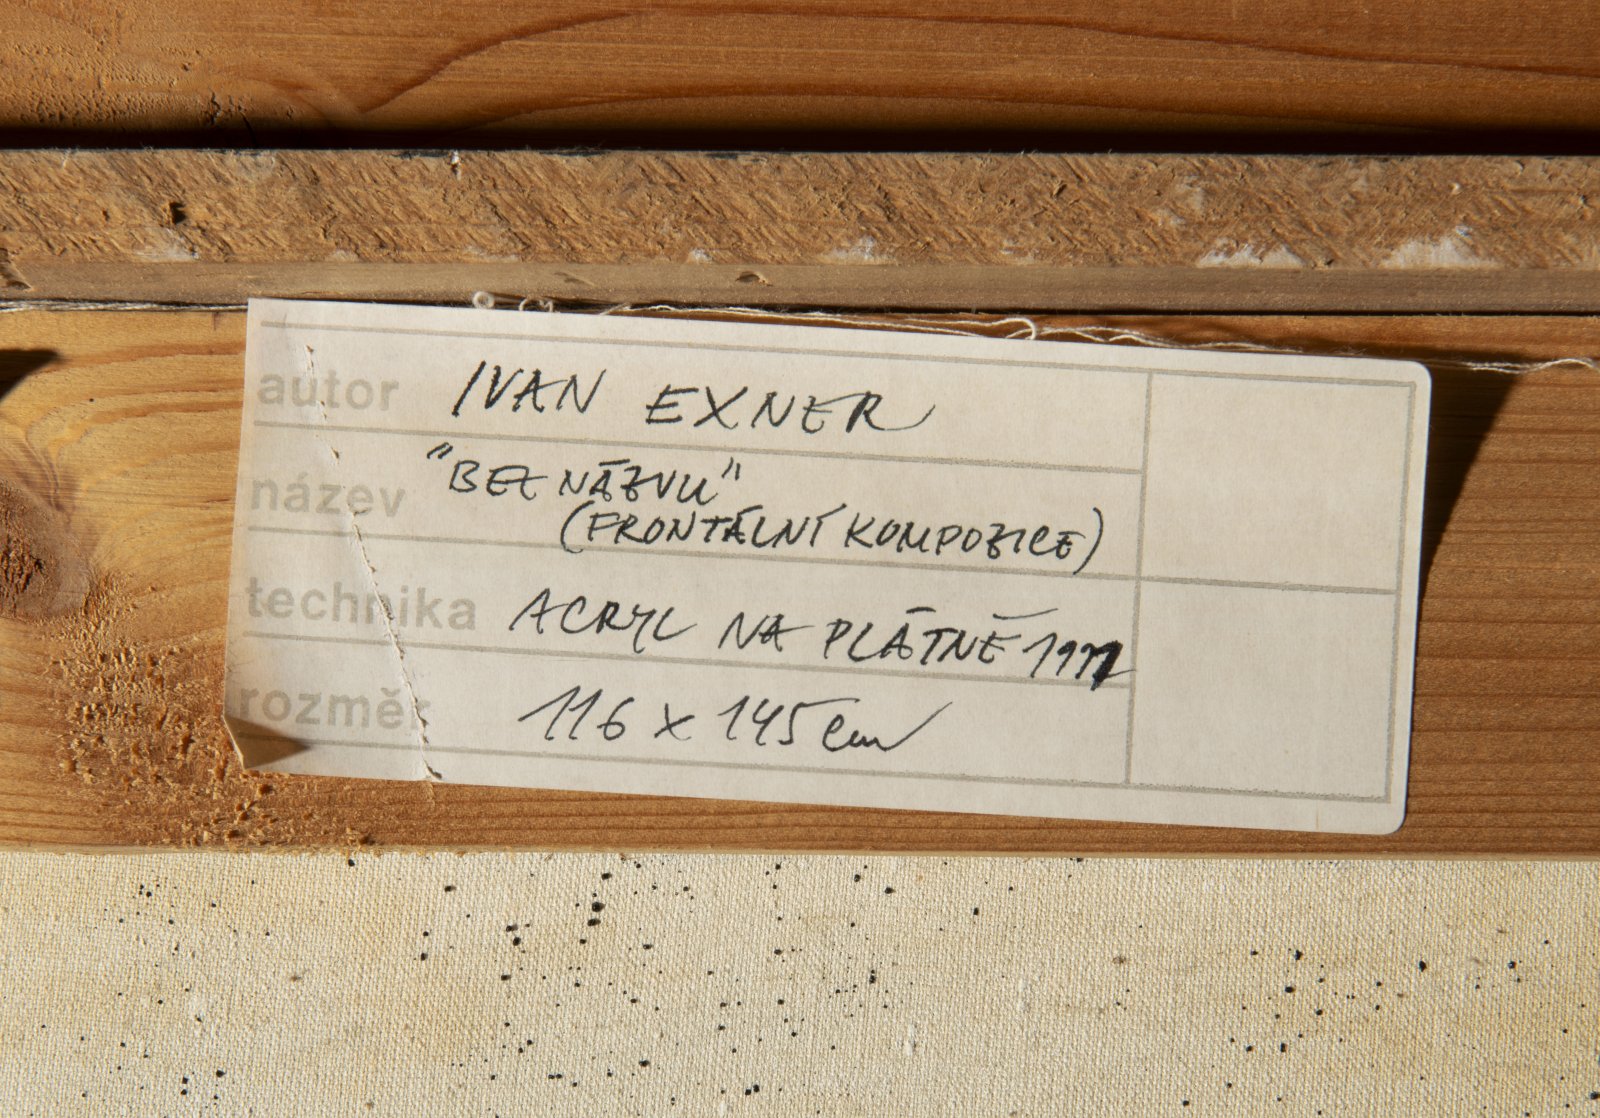 autor IVAN EXNER
název "BEZ NÁZVU"
(FRONTÁLNÍ KOMPOZICE)
technika ACRYL NA PLÁTNĚ
rozměr 116 x 145 cm